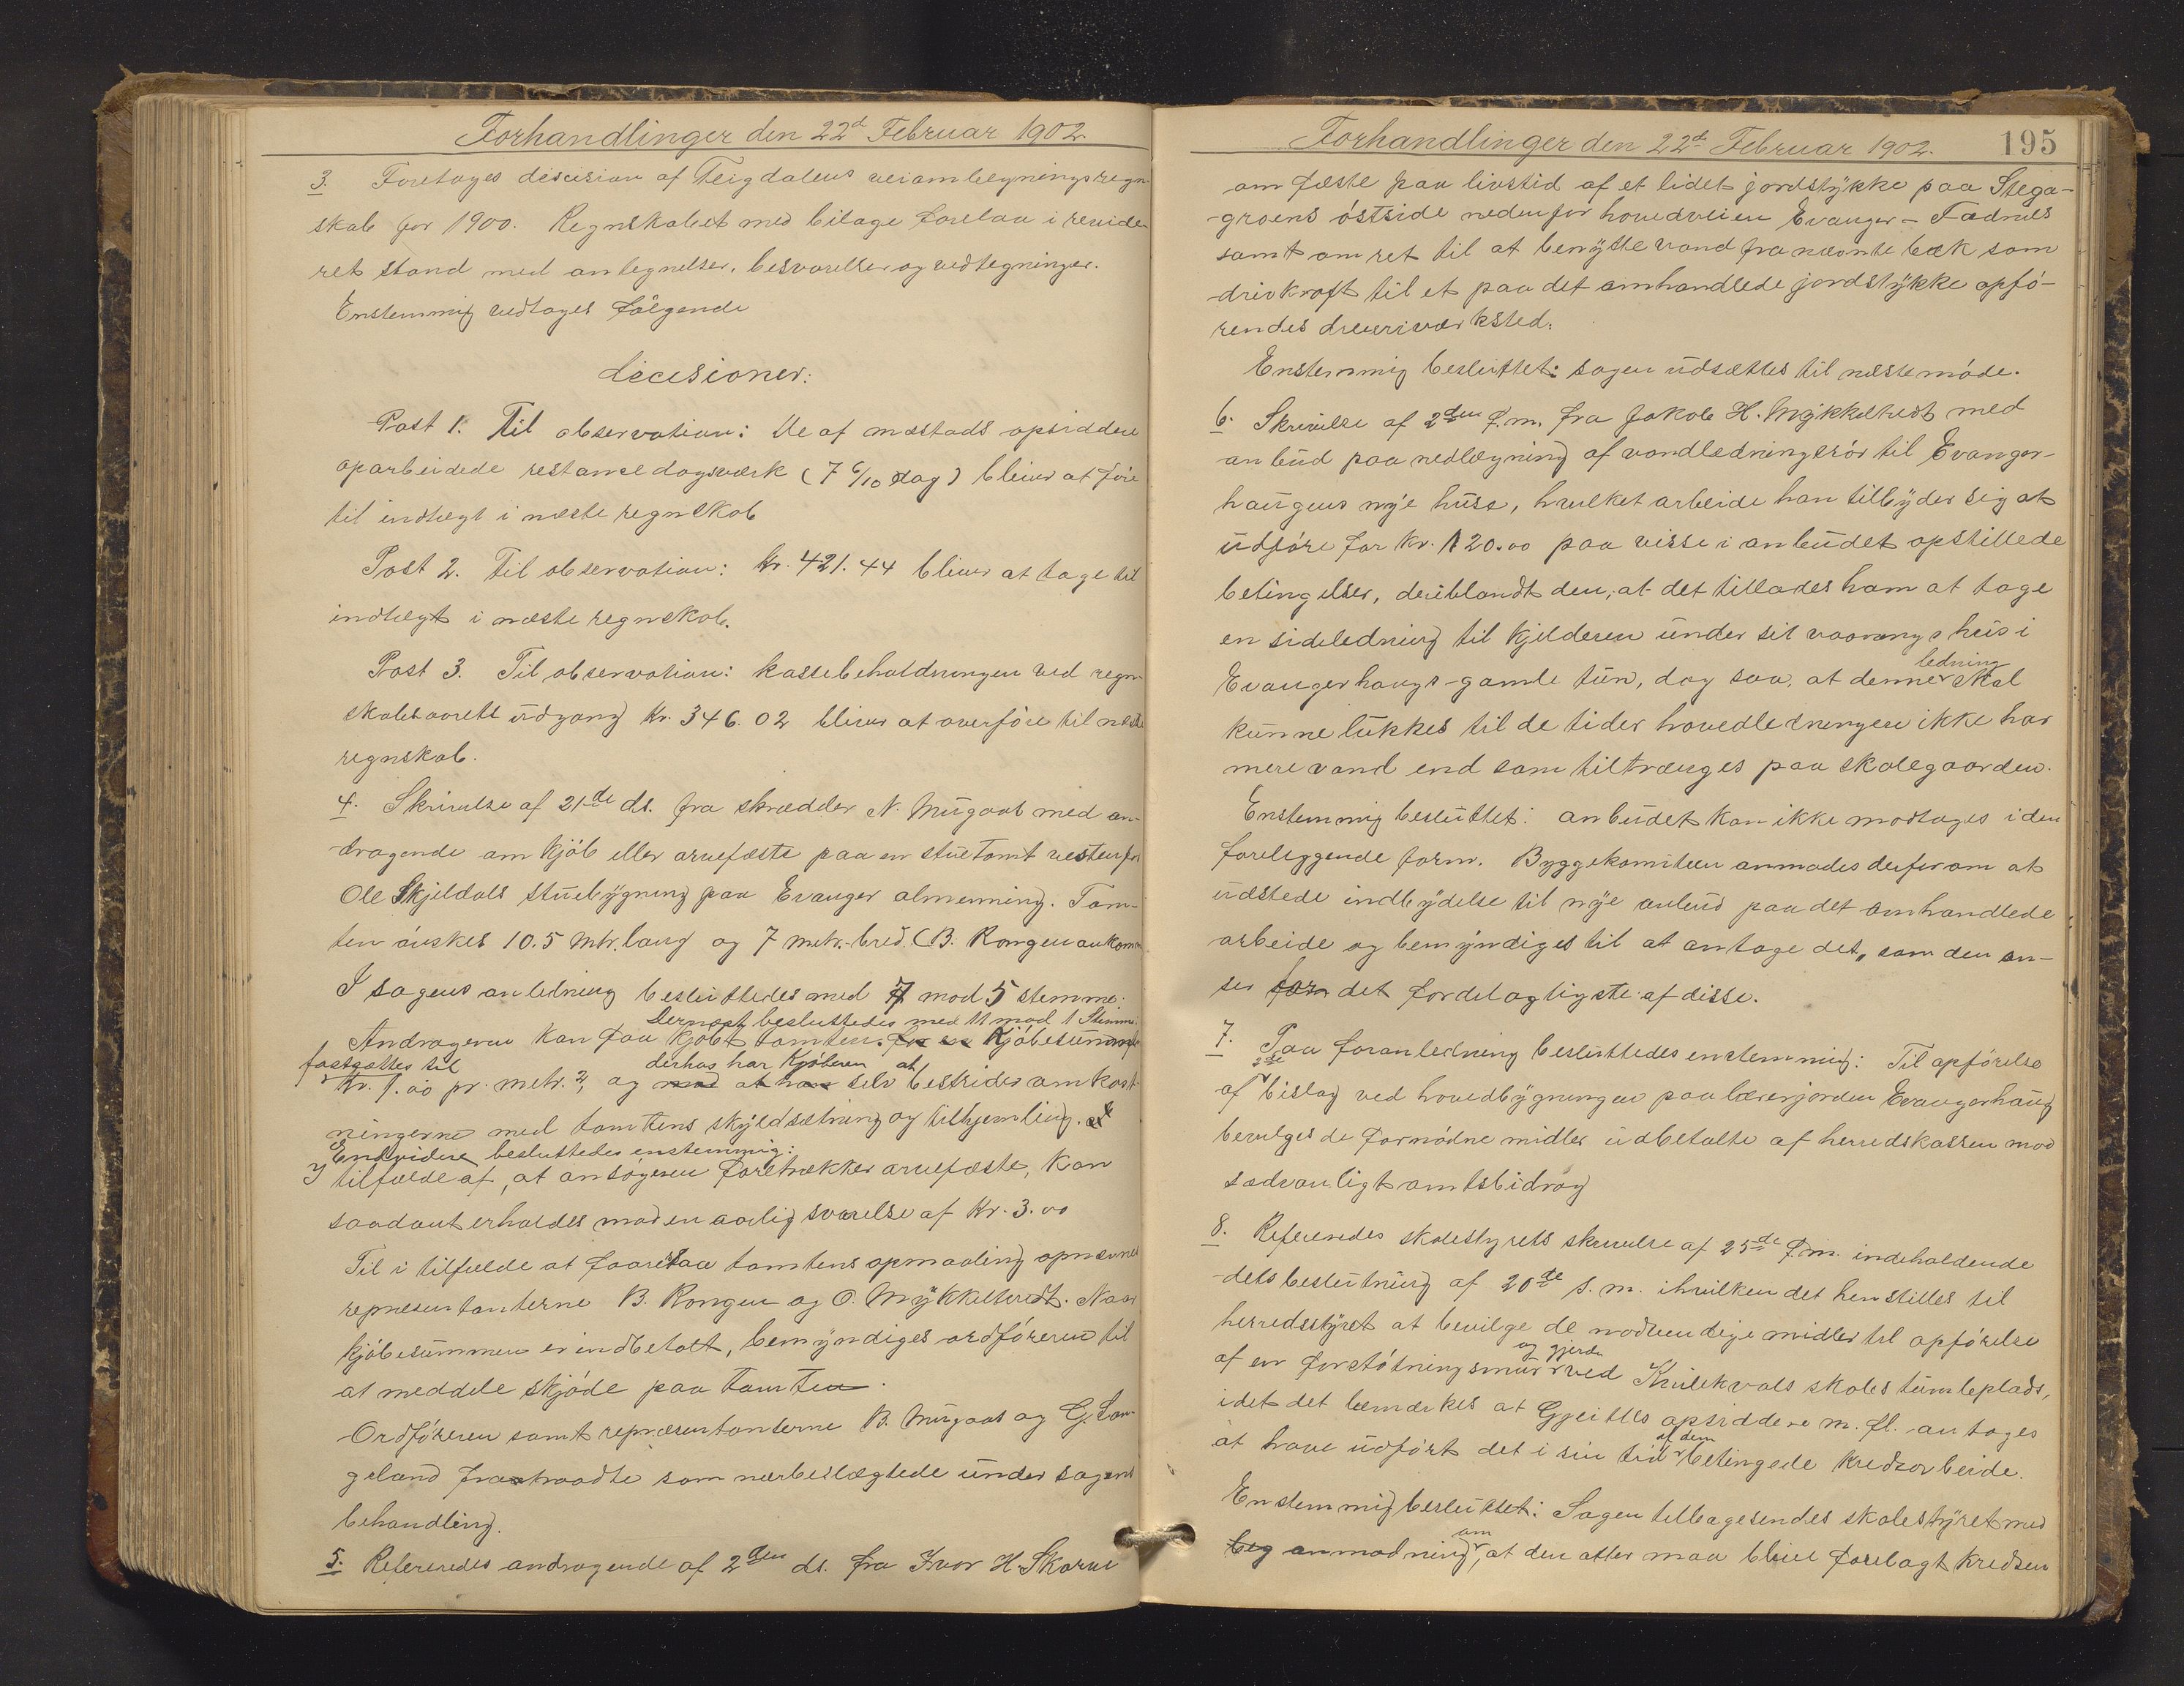 Forhandlinger den 22d Februar 1902.
3. Foretages descision af Teigdalens veiomlegningsregn-
skab for 1900. Regnskabet med bilage forelaa i revide-
ret stand med antegnelser, besvarelser og vedtegninger.
Enstemmig vedtages følgende
decisioner:
Post 1. Til observation: De af mestads opsiddere
oparbeidede restance dagsverk (7 6/10 dag) bliver at føre
til indtægt i næste regnskab
Post 2. Til observation: Kr. 421.44 bliver at tage til
indtægt i næste regnskab.
Post 3. Til observation: kassebeholdningen ved regn-
skabsaarets udgang Kr. 346.02 bliver at overføre til næste
regnskab.
4. Skrivelse af 21de ds. fra skrædder N. Mugaas med an-
dragende om kjøb eller arvefæste paa en stuetomt vestenfor
Ole Skjeldals stuebygning paa Evanger almenning. Tom-
ten ønskes 10.5 mtr. lang og 7 metr. bred. (B. Rongen ankom
I sagens anledning besluttedes med 7 mod 5 stemmer.
Dernæst besluttedes med 11 mod 1 Stemme:
Andrageren kan faa kjøbt tomten. for en Kjøbesummen
fastsættes til derhos har Kjøberen at
Kr. 1.00 pr. metr.2, og med at han selv bestrider omkost-
ningerne med tomtens skyldsætning og tilhjemling.
Endvidere besluttedes enstemmig:
I tilfælde af, at ansøgeren foretrækker arvefæste, kan
saadant erholdes mod en aarlig svarelse af Kr. 3.00
Til i tilfælde at foretaa tomtens opmaaling opnævnes
repræsentanterne B. Rongen og O. Mykkeltvedt. Naar
kjøbesummen er indbetalt, bemyndiges ordføreren til
at meddele skjøde paa tomten.
Ordføreren samt repræsentanterne B. Mugaas og G. Lan-
geland fratraadte som nærbeslægtede under sagens
behandling.
5. Refereredes andragende af 2den ds. fra Ivar H. Skorve
Forhandlinger den 22de Februar 1902. 195
om fæste paa livstid af et lidet jordstykke paa Stega-
-groens østside nedenfor hovedveien Evanger – Fadnes
samt om ret til at benytte vand fra nævnte bæk som
drivkraft til et paa det omhandlede jordstykke opfø-
rendes dreieriverksted.
Enstemmig besluttet: sagen udsættes til næste møde.
6. Skrivelse af 2den f.m. fra Jakob H. Mykkeltvedt med
anbud paa nedlægning af vandledningsrør til Evanger-
haugens nye huse, hvilket arbeide han tilbyder sig at
udføre for kr. 120.00 paa visse i anbudet opstillede
betingelser, deriblandt den, at det tillades ham at tage
en sideledning til kjelderen under sit vaanings hus i
ledning
Evangerhaugs gamle tun, dog saa, at denne skal
kunne lukkes til de tider hovedledningen ikke har
mere vand end som tiltrænges paa skolegaarden.
Enstemmig besluttet: anbudet kan ikke modtages i den
foreliggende form. Byggekomiteen anmodes derfor om at
udstede indbydelse til nye anbud paa det omhandlede
arbeide og bemyndiges til at antage det, som den an-
ser for det fordelagtigste af disse.
7. Paa foranledning besluttedes enstemmig: Til opførelse
2de
af bislag ved hovedbygningen paa lærerjorden Evangerhaug
bevilges de fornødne midler udbetalte af herredskassen mod
sædvanligt amtsbidrag
8. Refereredes skolestyrets skrivelse af 25de f.m. indeholdende
dets beslutning af 20de s.m. ihvilken det henstilles til
herredsstyret at bevilge de nødvendige midler til opførelse
og gjerde
af en forstøtningsmur ved Kvilekvals skoles tumleplads,
idet det bemærkes at Gjeitles opsiddere m. fl. antages
af dem
at have udført det i sin tid betingede kredsarbeide.
Enstemmig besluttet: Sagen tilbagesendes skolestyret med
om
beg anmodning, at den atter maa blive forelagt kredsen